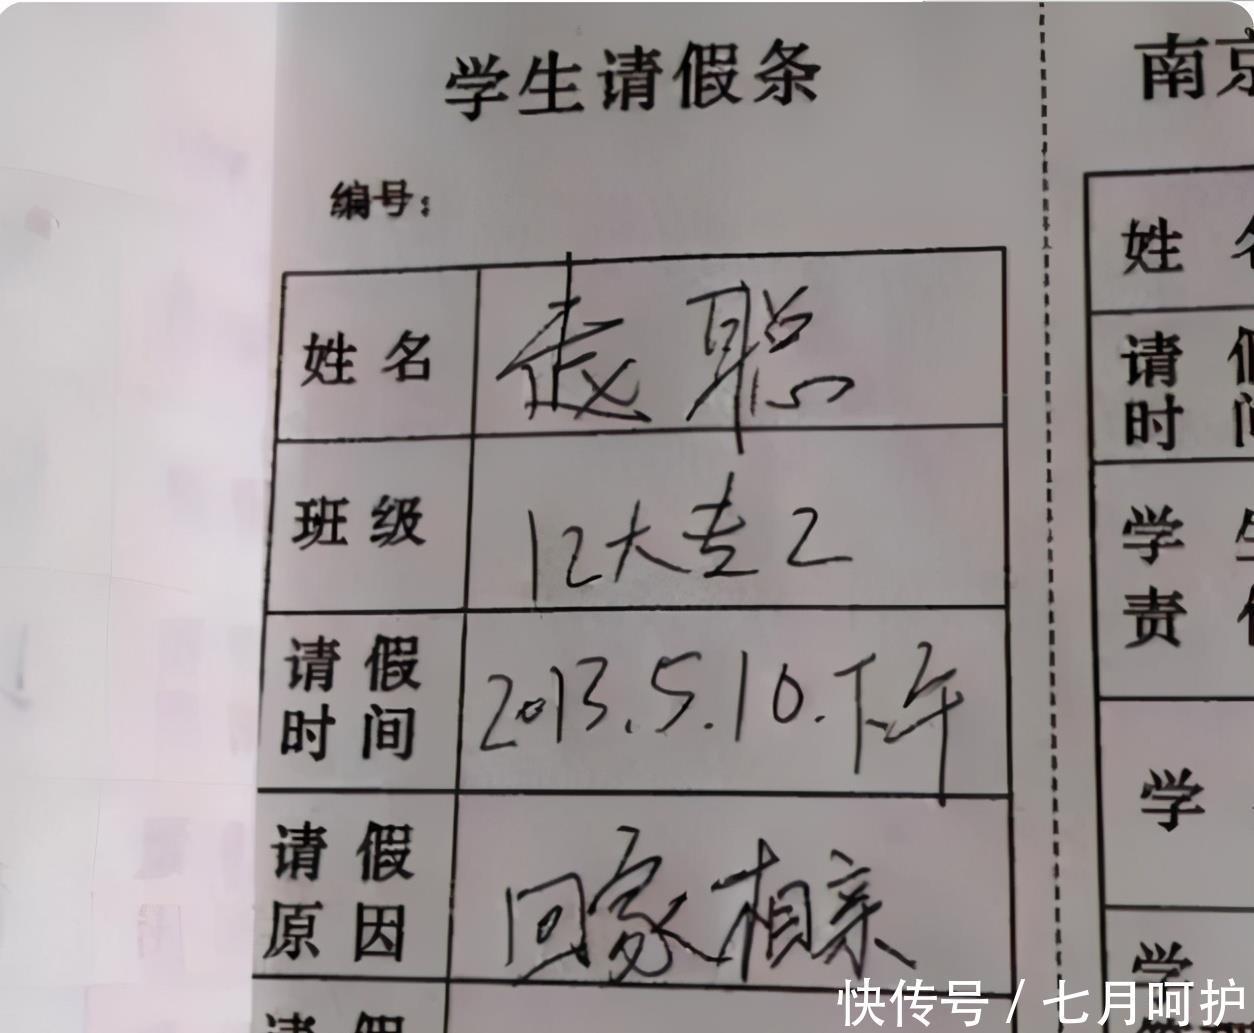 学生请假条
南京
编号：
姓名 赵聪
班级 12大专2
请假时间 2013.5.10.下午
请假原因 回家相亲
请假
姓
请
时
学
责
学
学
快传号 / 七月呵护